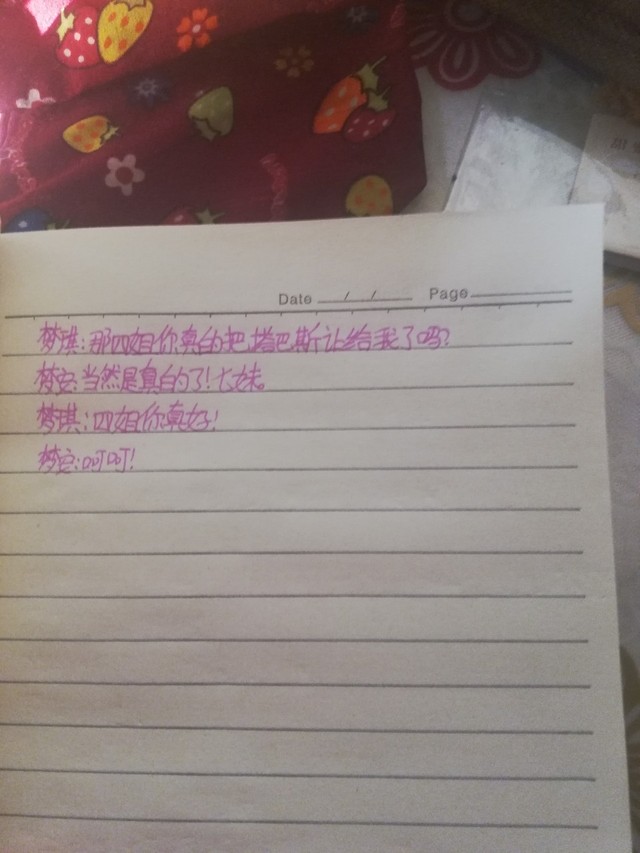 Date / / Page
梦琪:那四姐你真的把塔巴斯让给我了吗?
梦安:当然是真的了!七妹。
梦琪:四姐你真好!
梦安:呵呵!